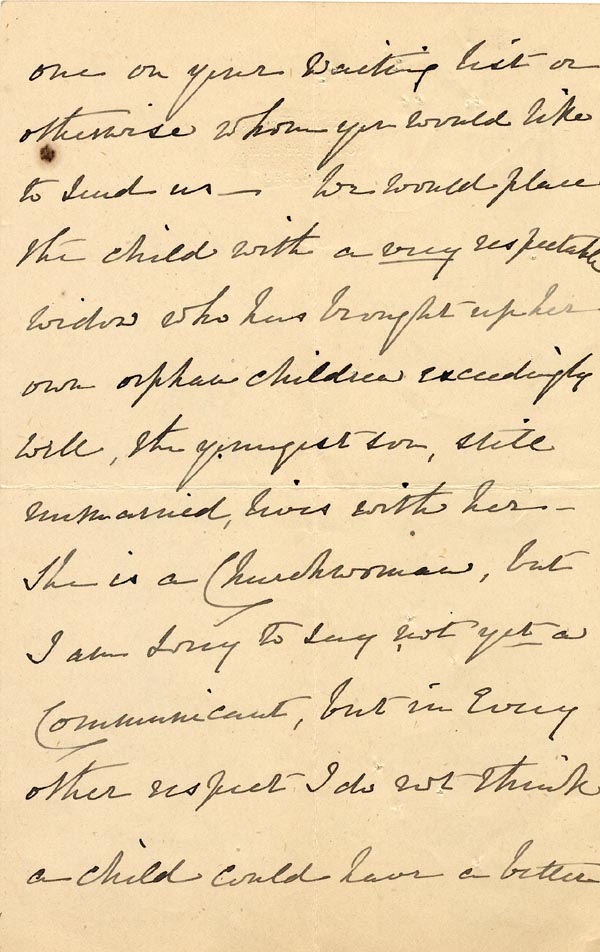 one on your waiting list or
otherwise whom you would like
to send us — We would place
the child with a very respectable
widow who has brought up her
own orphan children exceedingly
well, the youngest son, still
unmarried, lives with her —
She is a Churchwoman, but
I am sorry to say not yet a
Communicant, but in every
other respect I do not think
a child could have a better